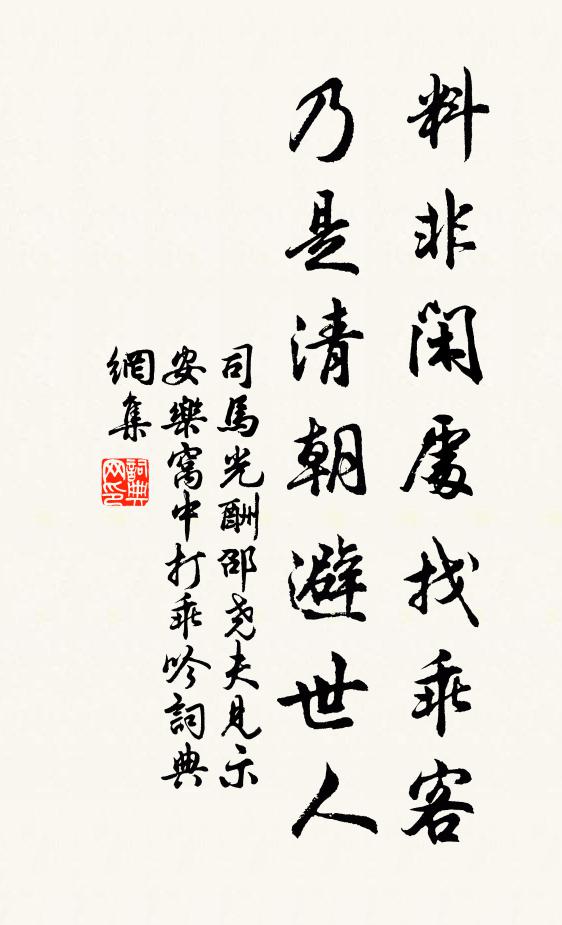 料非閑處找乖客
乃是清朝避世人
司馬光酬邵堯夫見示
安樂窩中打乖吟詞典
網集
詞典
网印